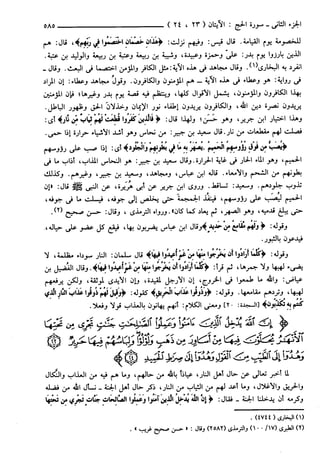 الجزء الثاني - سورة الحج : الآيتان ( ٢٣ ، ٢٤ ) ٥٨٥
للخصومة يوم القيامة. قال قيس: وفيهم نزلت: ﴿هَذَانِ خَصْمَانِ اخْتَصَمُوا فِي رَبِّهِمْ﴾، قال: هم
الذين بارزوا يوم بدر: علي وحمزة وعبيدة، وشيبة بن ربيعة وعتبة بن ربيعة والوليد بن عتبة.
انفرد به البخاري(١). وقال مجاهد في هذه الآية: مثل الكافر والمؤمن اختصما في البعث. وقال -
في رواية: هو وعطاء في هذه الآية - هم المؤمنون والكافرون. وقول مجاهد وعطاء: إن المراد
بهذا الكافرون والمؤمنون، يشمل الأقوال كلها، وينتظم فيه قصة يوم بدر وغيرها؛ فإن المؤمنين
يريدون نصرة دين الله، والكافرون يريدون إطفاء نور الإيمان وخذلان الحق وظهور الباطل.
وهذا اختيار ابن جرير، وهو حسن؛ ولهذا قال: ﴿فَالَّذِينَ كَفَرُوا قُطِّعَتْ لَهُمْ ثِيَابٌ مِنْ نَارٍ﴾ أي:
فصلت لهم مقطعات من نار. قال سعيد بن جبير: من نحاس وهو أشد الأشياء حرارة إذا حمي.
﴿يُصَبُّ مِنْ فَوْقِ رُءُوسِهِمُ الْحَمِيمُ. يُصْهَرُ بِهِ مَا فِي بُطُونِهِمْ وَالْجُلُودُ﴾ أي: إذا صب على رؤوسهم
الحميم، وهو الماء الحار في غاية الحرارة. وقال سعيد بن جبير: هو النحاس المذاب، أذاب ما في
بطونهم من الشحم والأمعاء. قاله ابن عباس، ومجاهد، وسعيد بن جبير، وغيرهم. وكذلك
تذوب جلودهم. وسعيد: تساقط. وروى ابن جرير عن أبي هريرة، عن النبي ﷺ قال: «إن
الحميم ليُصَب على رؤوسهم، فينفُذ الجمجمة حتى يخلص إلى جوفه، فيسلت ما في جوفه،
حتى يبلغ قدميه، وهو الصهر، ثم يعاد كما كان». ورواه الترمذي، وقال: حسن صحيح (٢).
وقوله: ﴿وَلَهُمْ مَقَامِعُ مِنْ حَدِيدٍ﴾ وقال ابن عباس يضربون بها، فيقع كل عضو على حياله،
فيدعون بالثبور.
وقوله: ﴿كُلَّمَا أَرَادُوا أَنْ يَخْرُجُوا مِنْهَا مِنْ غَمٍّ أُعِيدُوا فِيهَا﴾ قال سلمان: النار سوداء مظلمة، لا
يضيء لهبها ولا جمرها، ثم قرأ: ﴿كُلَّمَا أَرَادُوا أَنْ يَخْرُجُوا مِنْهَا مِنْ غَمٍّ أُعِيدُوا فِيهَا﴾. وقال الفُضَيل بن
عياض: والله ما طمعوا في الخروج، إن الأرجل لمقيدة، وإن الأيدي لموثقة، ولكن يرفعهم
لهبها، وتردهم مقامعها. وقوله: ﴿وَذُوقُوا عَذَابَ الْحَرِيقِ﴾ كقوله: ﴿وَقِيلَ لَهُمْ ذُوقُوا عَذَابَ النَّارِ الَّذِي
كُنْتُمْ بِهِ تُكَذِّبُونَ﴾ [السجدة: ٢٠] ومعنى الكلام: أنهم يهانون بالعذاب قولا وفعلا.
إِنَّ اللَّهَ يُدْخِلُ الَّذِينَ آمَنُوا وَعَمِلُوا الصَّالِحَاتِ جَنَّاتٍ تَجْرِي مِنْ تَحْتِهَا
الْأَنْهَارُ يُحَلَّوْنَ فِيهَا مِنْ أَسَاوِرَ مِنْ ذَهَبٍ وَلُؤْلُؤًا وَلِبَاسُهُمْ فِيهَا حَرِيرٌ
﴿٢٣﴾ وَهُدُوا إِلَى الطَّيِّبِ مِنَ الْقَوْلِ وَهُدُوا إِلَى صِرَاطِ الْحَمِيدِ ﴿٢٤﴾
لما أخبر تعالى عن حال أهل النار، عياذًا بالله من حالهم، وما هم فيه من العذاب والنَّكال
والحريق والأغلال، وما أعد لهم من الثياب من النار، ذكر حال أهل الجنة - نسأل الله من فضله
وكرمه أن يدخلنا الجنة - فقال: ﴿إِنَّ اللَّهَ يُدْخِلُ الَّذِينَ آمَنُوا وَعَمِلُوا الصَّالِحَاتِ جَنَّاتٍ تَجْرِي مِنْ تَحْتِهَا
(١) البخاري (٤٧٤٤)
(٢) الطبري (١٧/ ١٠٠) والترمذي (٢٥٨٢) وقال: «حسن صحيح غريب».